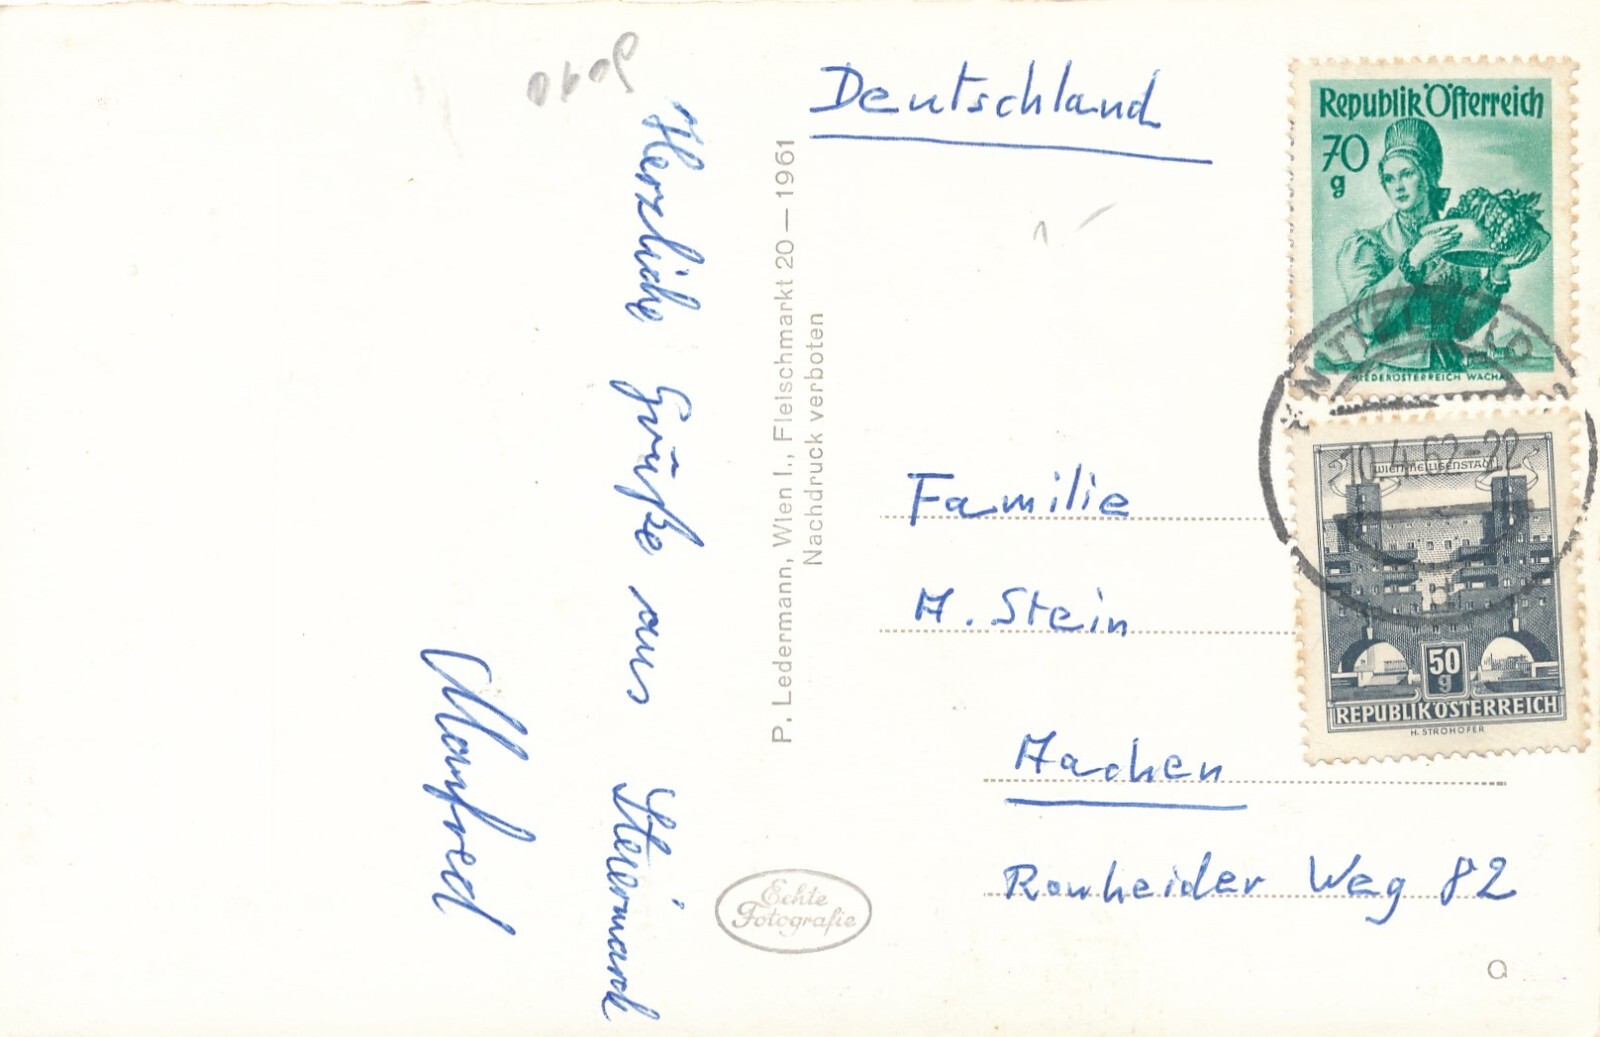 Herzliche Grüße aus Steiermark
Manfred
P. Ledermann, Wien I., Fleischmarkt 20 — 1961
Nachdruck verboten
Echte
Fotografie
Deutschland
Familie
A. Stein
Aachen
Ronheider Weg 82
Q
Republik Österreich
70
g
NIEDERÖSTERREICH WACHAU
KNITTELFELD
10.4.62-22
WIEN-HEILIGENSTADT
50
g
REPUBLIK ÖSTERREICH
H. STROHOFER